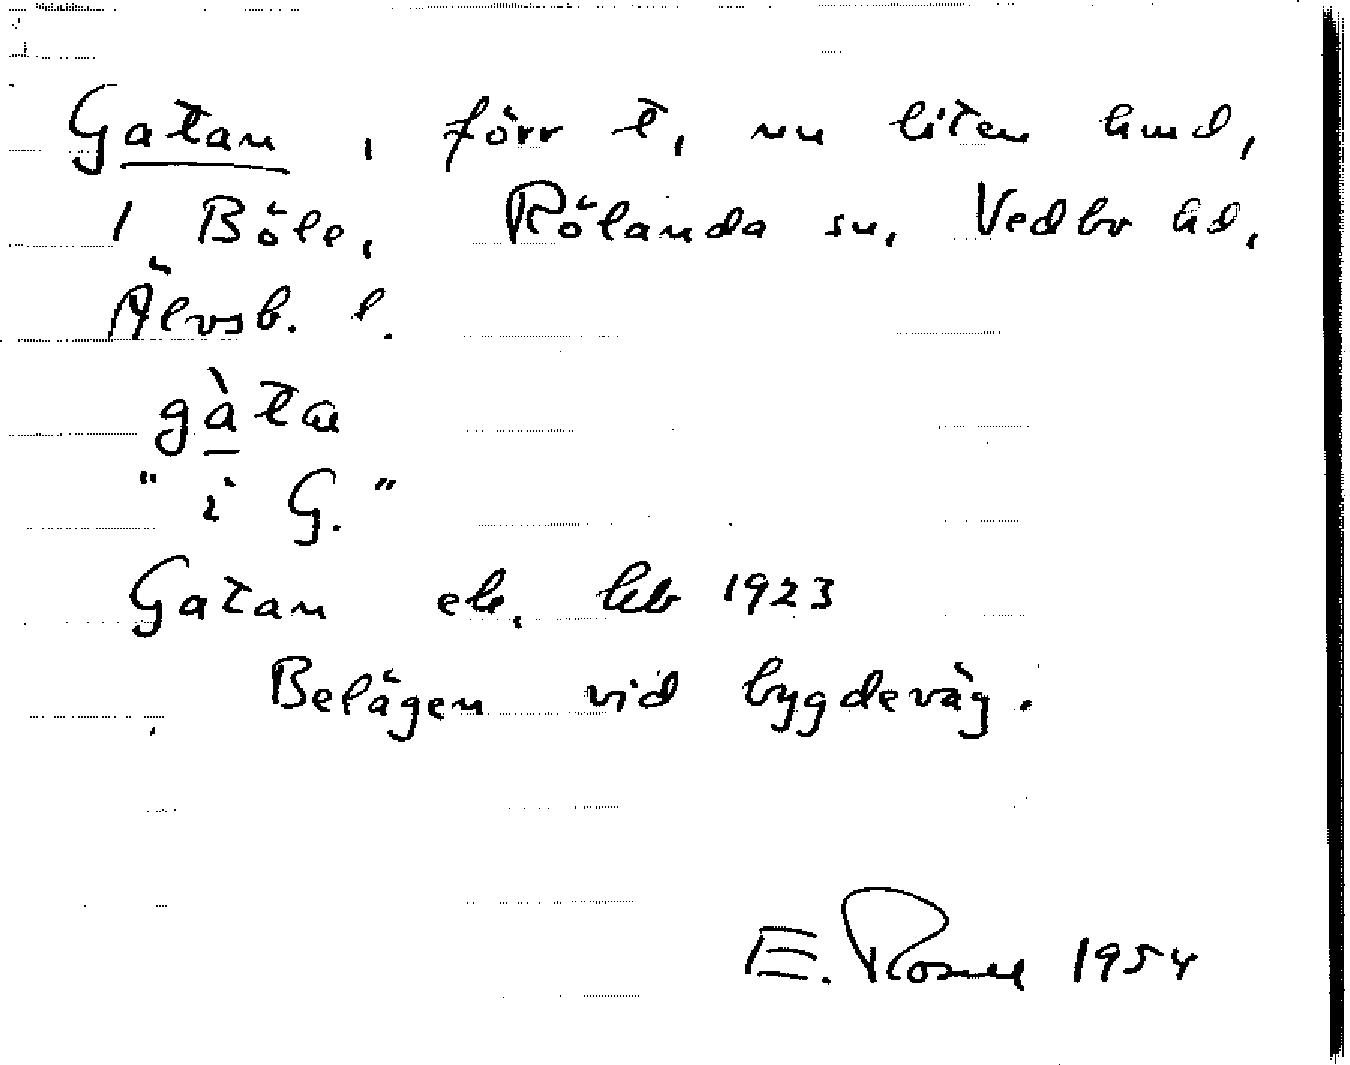 Gatan, förr t, nu liten hmd,
i Böle, Rölanda sn, Vedbo hd,
Älvsb. l.
gàta
"i G."
Gatan ek. kb 1923
Belägen vid bygdeväg.
E. Rosell 1954